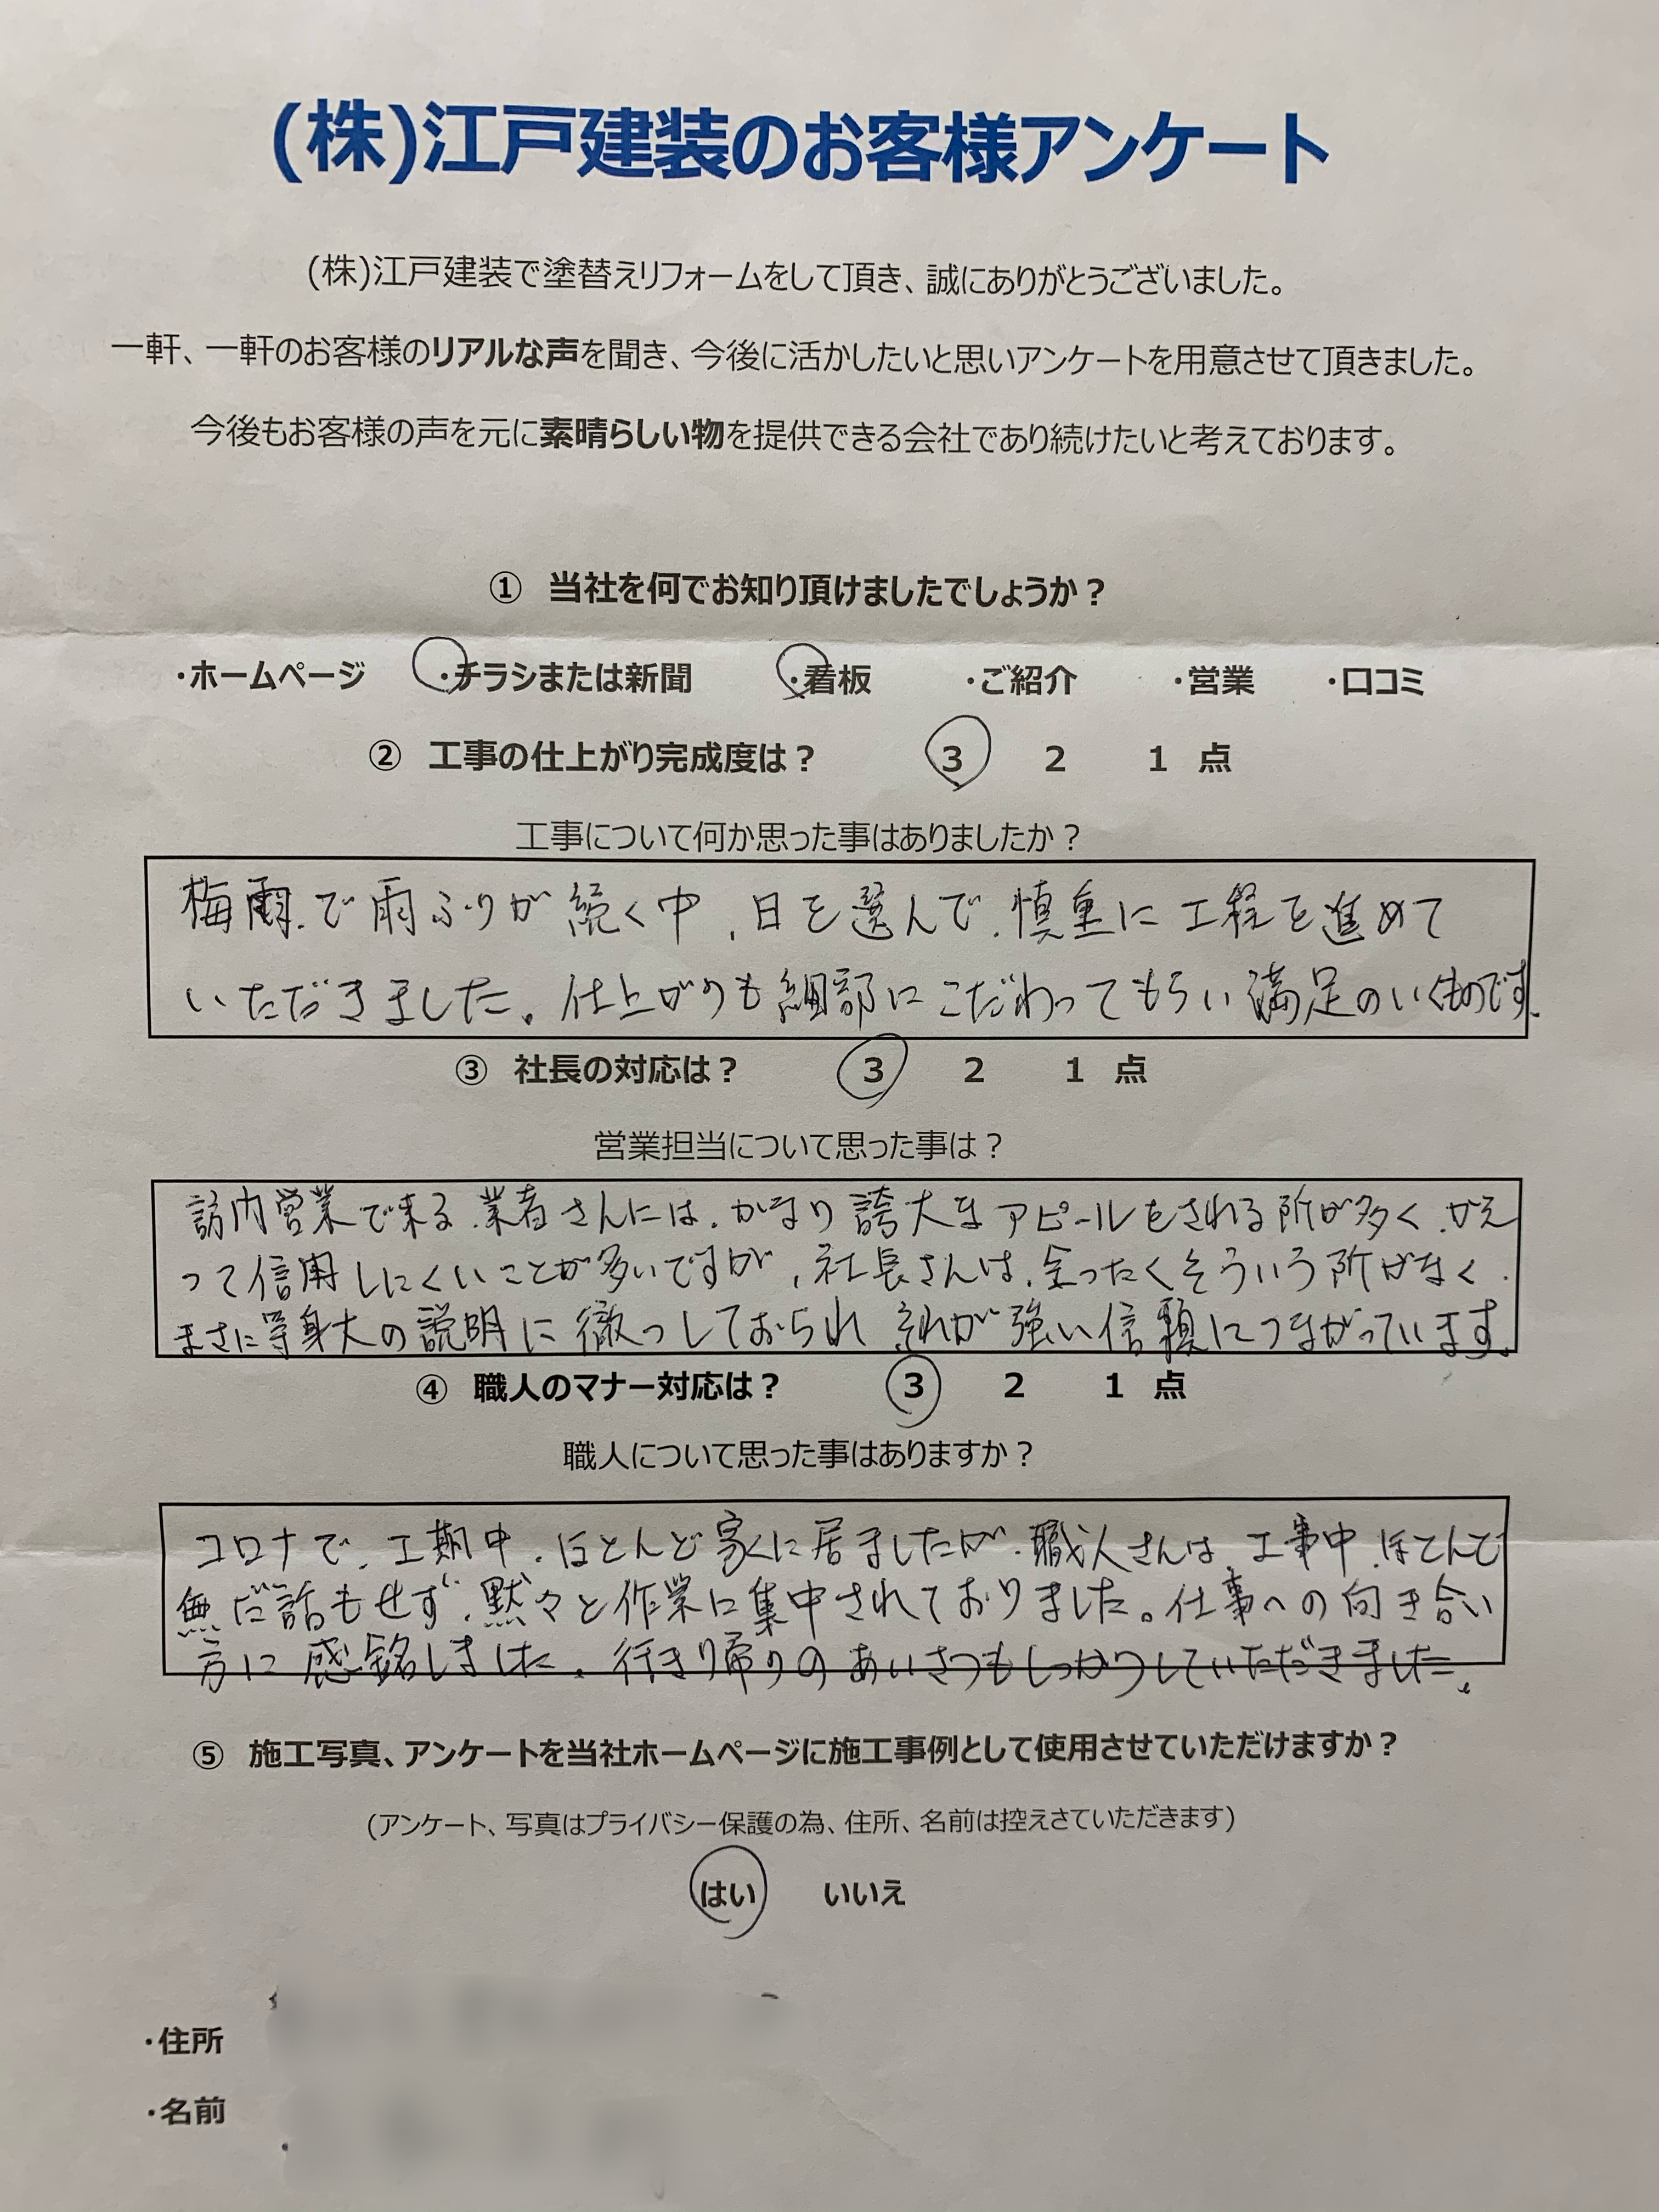 (株)江戸建装のお客様アンケート
(株)江戸建装で塗替えリフォームをして頂き、誠にありがとうございました。
一軒、一軒のお客様のリアルな声を聞き、今後に活かしたいと思いアンケートを用意させて頂きました。
今後もお客様の声を元に素晴らしい物を提供できる会社であり続けたいと考えております。
① 当社を何でお知り頂けましたでしょうか？
・ホームページ ・チラシまたは新聞 ・看板 ・ご紹介 ・営業 ・口コミ
② 工事の仕上がり完成度は？ 3 2 1 点
工事について何か思った事はありましたか？
梅雨で雨ふりが続く中、日を選んで、慎重に工程を進めて
いただきました。仕上がりも細部にこだわってもらい満足のいくものです。
③ 社長の対応は？ 3 2 1 点
営業担当について思った事は？
訪内営業で来る業者さんには、かなり誇大なアピールをされる所が多く、かえ
って信用しにくいことが多いですが、社長さんは、全ったくそういう所がなく、
まさに等身大の説明に徹っしておられ それが強い信頼につながっています。
④ 職人のマナー対応は？ 3 2 1 点
職人について思った事はありますか？
コロナで、工期中、ほとんど家に居ましたが、職人さんは、工事中、ほとんど
無だ話もせず、黙々と作業に集中されておりました。仕事への向き合い
方に感銘しました。行き帰りのあいさつもしっかりしていただきました。
⑤ 施工写真、アンケートを当社ホームページに施工事例として使用させていただけますか？
(アンケート、写真はプライバシー保護の為、住所、名前は控えさていただきます)
はい いいえ
・住所
・名前